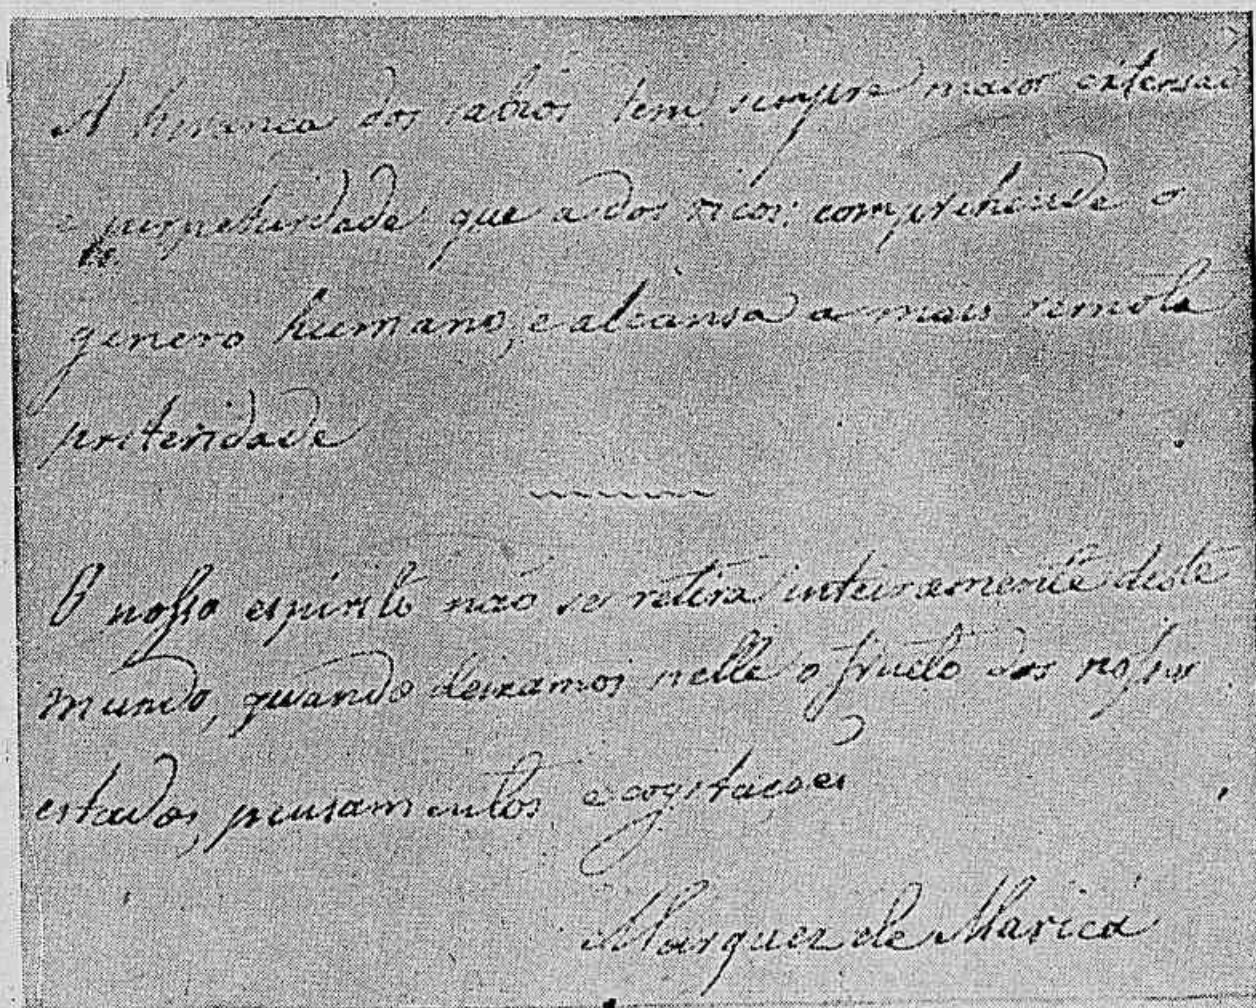 A herança dos sabios tem sempre maior extensaõ
e perpetuidade que a dos ricos: comprehende o
genero humano, e alcansa a mais remota
posteridade
O nosso espirito naõ se retira inteiramente deste
mundo, quando deixamos nelle o fructo dos nossos
estudos, pensamentos e cogitações
Marquez de Maricá